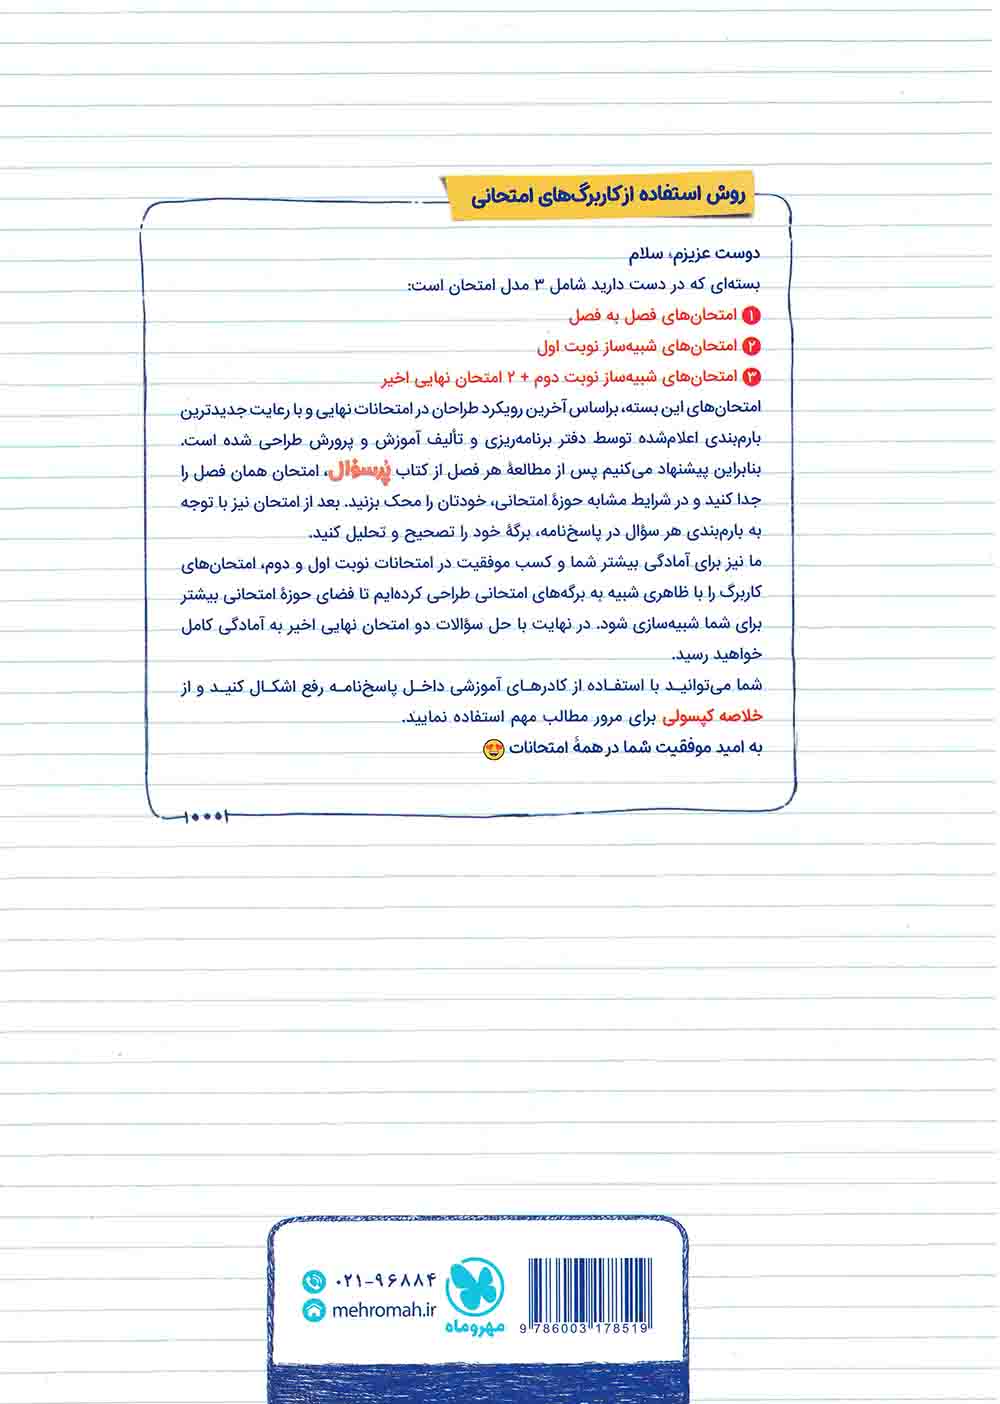 روش استفاده از کاربرگ‌های امتحانی
دوست عزیزم، سلام
بسته‌ای که در دست دارید شامل ۳ مدل امتحان است:
۱ امتحان‌های فصل به فصل
۲ امتحان‌های شبیه‌ساز نوبت اول
۳ امتحان‌های شبیه‌ساز نوبت دوم + ۲ امتحان نهایی اخیر
امتحان‌های این بسته، براساس آخرین رویکرد طراحان در امتحانات نهایی و با رعایت جدیدترین
بارم‌بندی اعلام‌شده توسط دفتر برنامه‌ریزی و تألیف آموزش و پرورش طراحی شده است.
بنابراین پیشنهاد می‌کنیم پس از مطالعهٔ هر فصل از کتاب پُرسؤال، امتحان همان فصل را
جدا کنید و در شرایط مشابه حوزهٔ امتحانی، خودتان را محک بزنید. بعد از امتحان نیز با توجه
به بارم‌بندی هر سؤال در پاسخ‌نامه، برگهٔ خود را تصحیح و تحلیل کنید.
ما نیز برای آمادگی بیشتر شما و کسب موفقیت در امتحانات نوبت اول و دوم، امتحان‌های
کاربرگ را با ظاهری شبیه به برگه‌های امتحانی طراحی کرده‌ایم تا فضای حوزهٔ امتحانی بیشتر
برای شما شبیه‌سازی شود. در نهایت با حل سؤالات دو امتحان نهایی اخیر به آمادگی کامل
خواهید رسید.
شما می‌توانید با استفاده از کادرهای آموزشی داخل پاسخ‌نامه رفع اشکال کنید و از
خلاصه کپسولی برای مرور مطالب مهم استفاده نمایید.
به امید موفقیت شما در همهٔ امتحانات
۰۲۱-۹۶۸۸۴
mehromah.ir
مهروماه
9 786003 178519